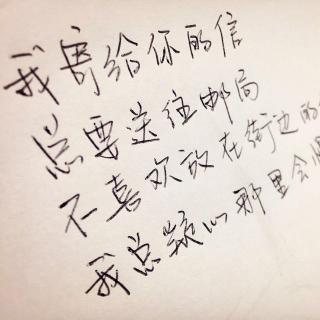 我寄给你的信
总要送往邮局
不喜欢放在街边的
我总疑心那里会